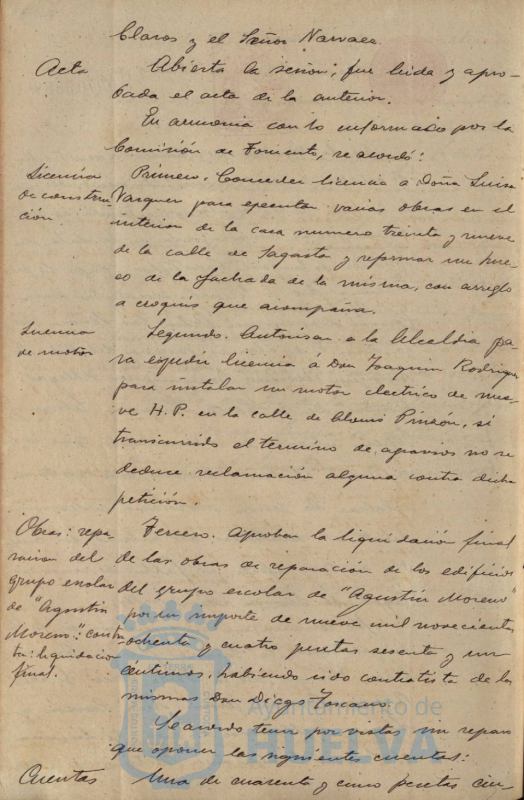 Claros y el Señor Narvaez.
Acta
Abierta la sesión; fue leida y apro-
bada el acta de la anterior.
En armonia con lo informado por la
Comisión de Fomento, se acordó:
Licencia
de construc-
ción
Primero. Conceder licencia a Doña Luisa
Vazquez para ejecutar varias obras en el
interior de la casa numero treinta y nueve
de la calle de Sagasta y reformar un hue-
co de la fachada de la misma, con arreglo
a croquis que acompaña.
Licencia
de motor
Segundo. Autorizar a la Alcaldia pa-
ra expedir licencia á Don Joaquin Rodriguez
para instalar un motor electrico de nue-
ve H.P. en la calle de Alonso Pinzón, si
transcurrido el termino de agravios no se
deduce reclamación alguna contra dicha
petición.
Obras: repa-
racion del
grupo escolar
de "Agustín
Moreno": contra-
ta: liquidacion
final.
Tercero. Aprobar la liquidación final
de las obras de reparación de los edificios
del grupo escolar de "Agustín Moreno"
por un importe de nueve mil novecientas
ochenta y cuatro pesetas sesenta y un
céntimos, habiendo sido contratista de las
mismas Don Diego Toscano.
Se acordó tener por vistas sin reparo
que oponer las siguientes cuentas:
Cuentas
Una de cuarenta y cinco pesetas cin-
Ayuntamiento de
HUELVA